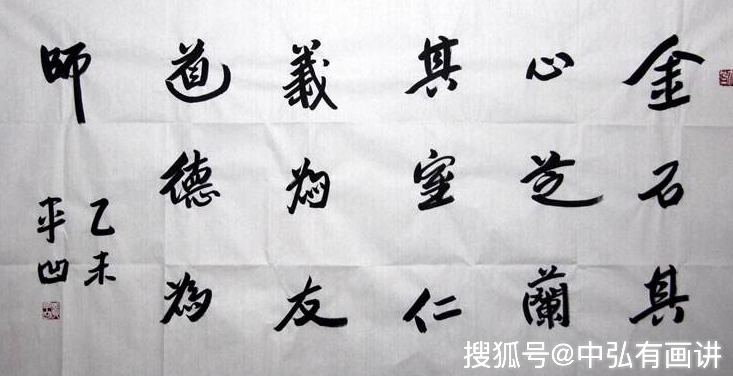 金石其
心芝蘭
其室仁
義為友
道德為
師
乙未
平凹
搜狐号@中弘有画讲